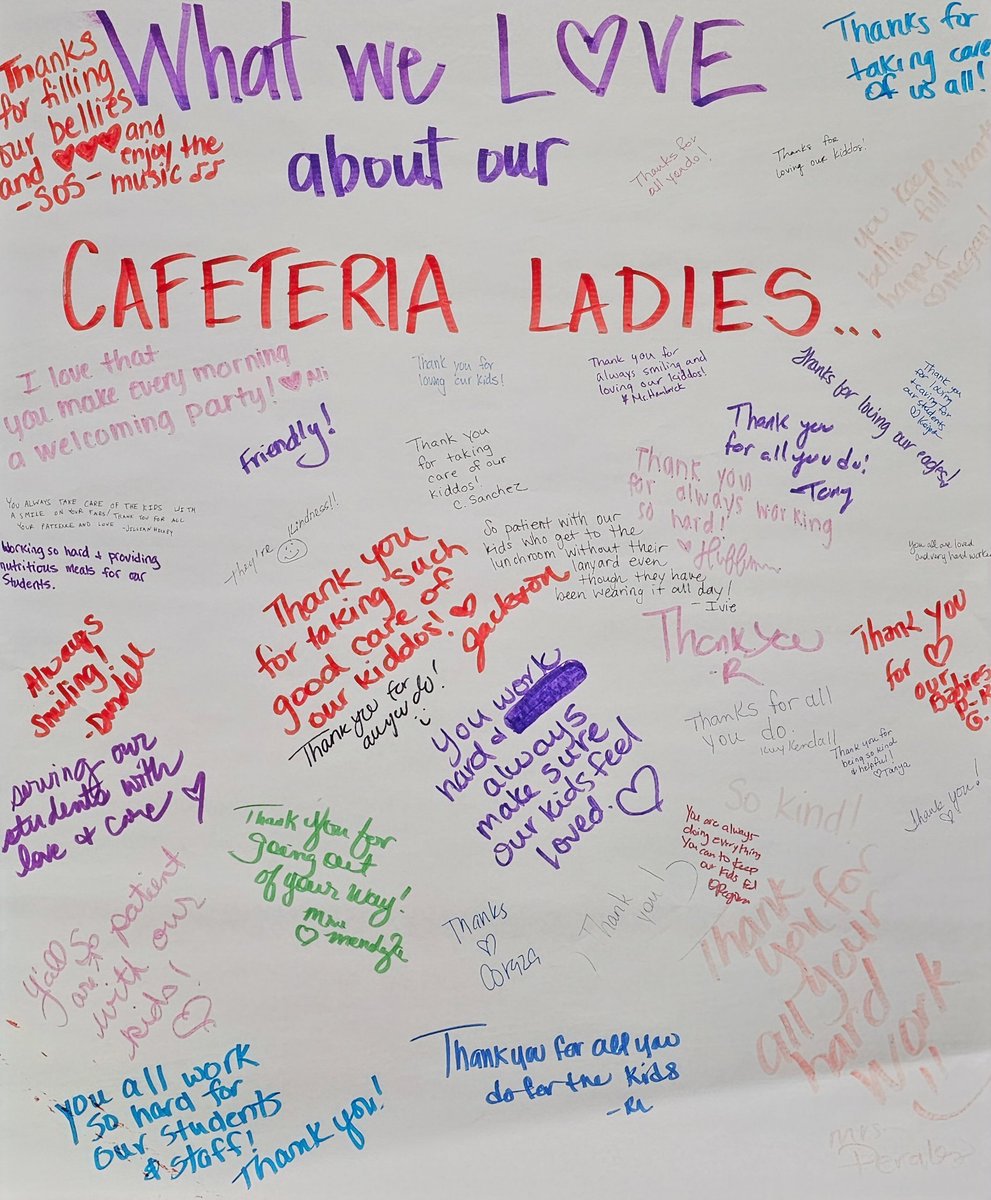 What we LOVE
about our
CAFETERIA LADIES...
Thanks
for filling
our bellies
and ♥♥♥ and
enjoy the
-SOS- music ♫
Thanks for
taking care
of us all!
Thanks for
all you do!
Thanks for
loving our kiddos!
you keep
bellies full & hearts
happy
I love that
you make every morning
a welcoming party! ♥ Ali
Thank you for
loving our kids!
Thank you for
always smiling and
loving our kiddos!
Thanks for loving our eagles!
Thank you
for loving
& caring for
our students
Friendly!
Thank you
for taking
care of our
kiddos!
C. Sanchez
Thank you
for all you do!
-Tony
Thank you
for always working
so hard!
YOU ALWAYS TAKE CARE OF THE KIDS WITH
A SMILE ON YOUR FACE! THANK YOU FOR ALL
YOUR PATIENCE AND LOVE
Working so hard & providing
nutritious meals for our
students.
They're kindness!!
So patient with our
kids who get to the
lunchroom without their
lanyard even
though they have
been wearing it all day!
- Ivie
You all are loved
and very hard workers
Thank you
for taking such
good care of
our kiddos! ♡
Jackson
Thank you for
all you do!
Always
Smiling!
Thank you
-R
Thank you
for ♡
our
Babies
you work
hard &
always
make sure
our kids feel
loved. ♡
Thanks for all
you do.
Kuykendall
Thank you for
being so kind
& helpful!
♡ Tanya
serving our
students with
love & care ♡
So kind!
Thank you!
♡
Thank you for
going out
of your way!
Mrs.
♡ Mendoza
You are always
doing everything
you can to keep
our kids fed
Y'all are so patient
with our
kids! ♡
Thanks
♡
Coraza
Thank you!
Thank you for
all your
hard
work
Mrs.
Perales
Thank you for all you
do for the kids
you all work
so hard for
our students
& staff!
Thank you!